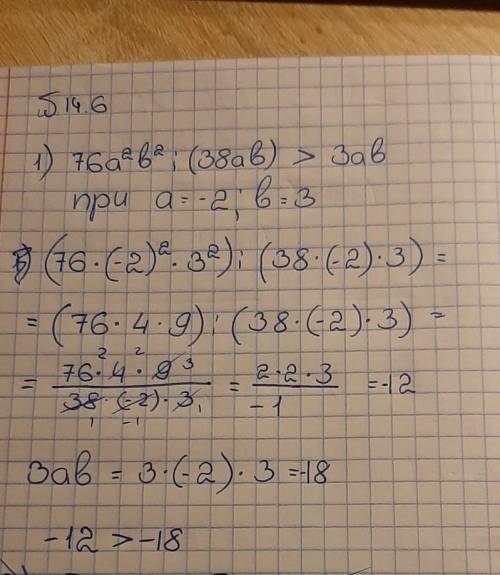 №14.6
1) 76a²b² : (38ab) > 3ab
при a = -2; b = 3
(76 · (-2)² · 3²) : (38 · (-2) · 3) =
= (76 · 4 · 9) : (38 · (-2) · 3) =
= 76 · 4 · 9 / 38 · (-2) · 3 = 2 · 2 · 3 / -1 = -12
3ab = 3 · (-2) · 3 = -18
-12 > -18